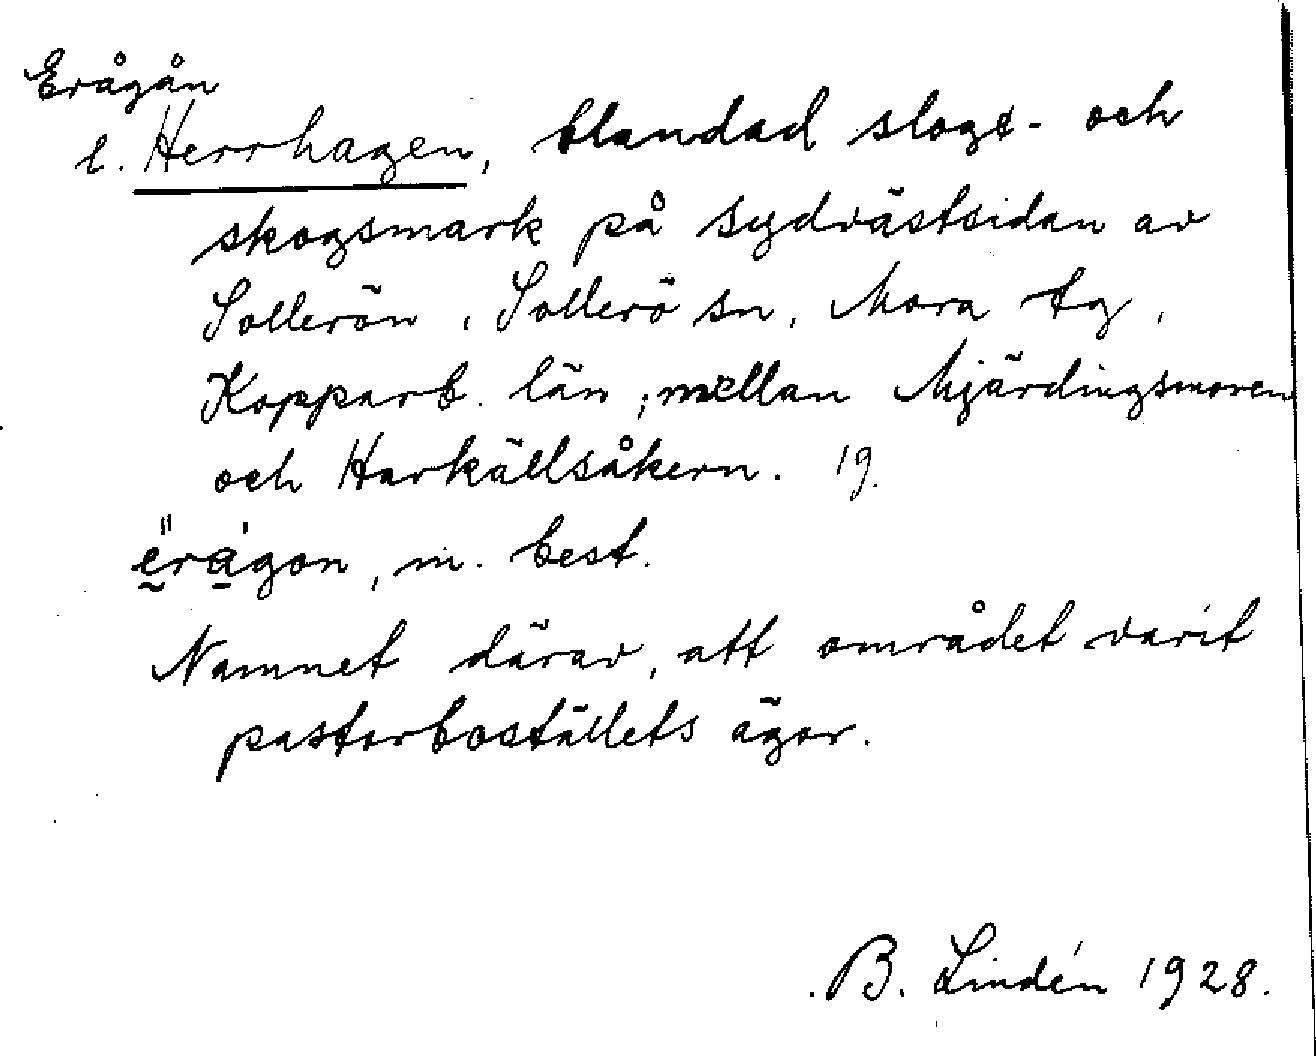 Erågån
l. Herrhagen, blandad slogs- och
skogsmark på sydvästsidan av
Sollerön, Sollerö sn, Mora tg,
Kopparb. län, mellan Mjärdingsmoren
och Harkällsåkern. 19.
ḛ̈rágon, m. best.
Namnet därav, att området varit
pastorboställets ägor.
B. Lindén 1928.